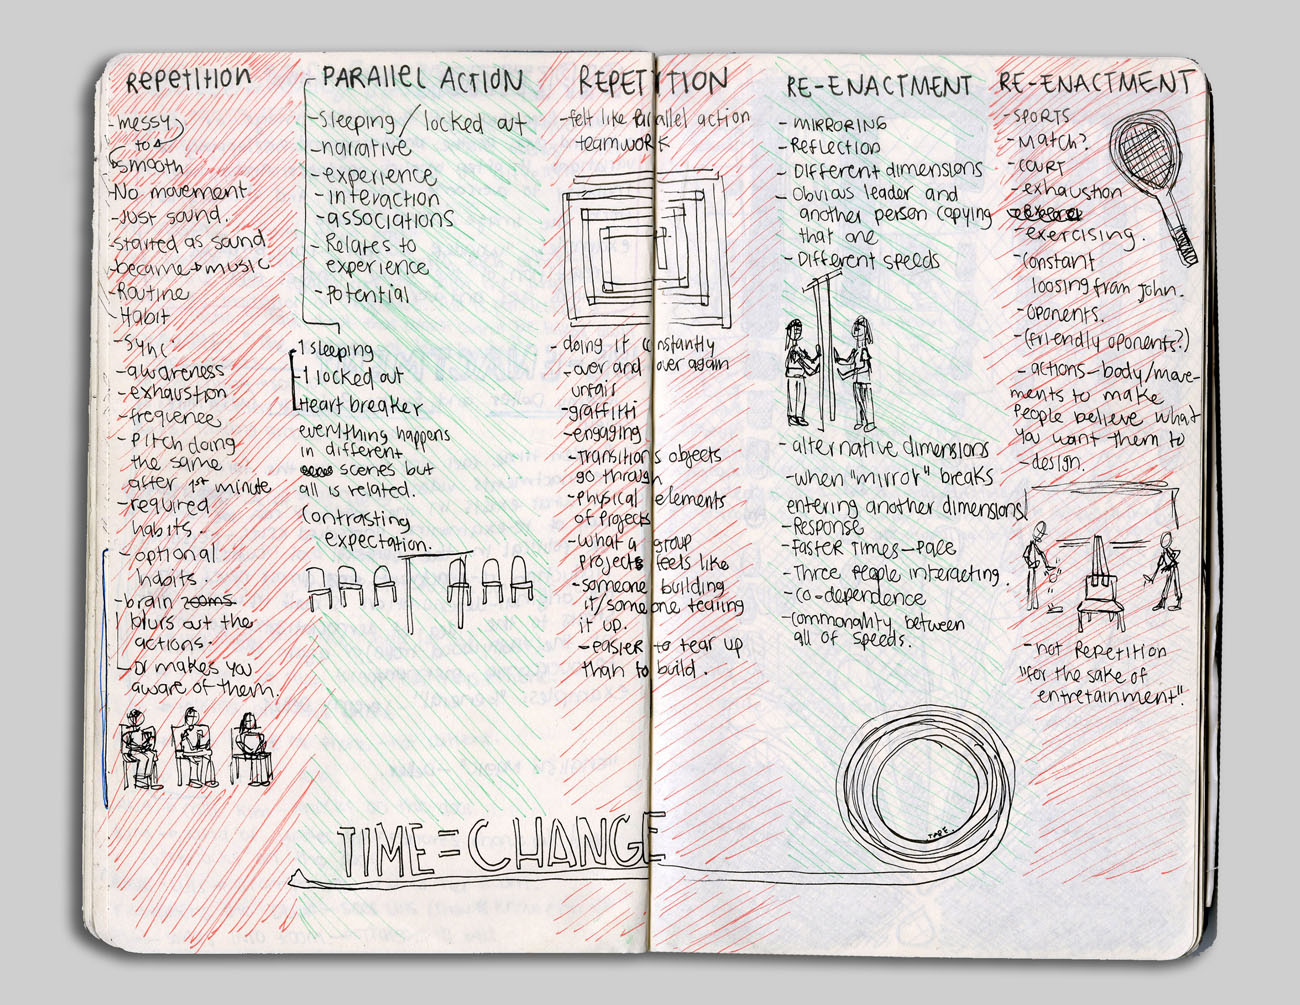 REPETITION
-messy
to a
smooth
-No movement
-Just sound.
-started as sound.
-became → music
-Routine
-Habit
-sync.
-awareness
-exhaustion
-frequence
-pitch doing
the same
after 1st minute
-required
habits.
-optional
habits.
-brain
blurs out the
actions.
-or makes you
aware of them.
PARALLEL ACTION
-sleeping/locked out
-narrative
-experience
-interaction
-associations
-Relates to
experience
-Potential
-1 sleeping
-1 locked out
Heart breaker
everything happens
in different
scenes but
all is related.
Contrasting
expectation.
REPETITION
-felt like parallel action
teamwork
-doing it constantly
-over and over again
unfair
-graffitti
-engaging
-transitions objects
go through
-physical elements
of projects
-what a group
projects feels like
-someone building
it/someone tearing
it up.
-easier to tear up
than to build.
RE-ENACTMENT
-MIRRORING
-Reflection
-Different dimensions
-Obvious leader and
another person copying
that one
-Different speeds
-alternative dimensions
-when "mirror" breaks
entering another dimension
-Response
-Faster Times-pace
-Three people interacting.
-co-dependence
-commonality between
all of speeds.
RE-ENACTMENT
-SPORTS
-Match?
-court
-exhaustion
-exercising.
-Constant
loosing from John.
-oponents.
-(friendly oponents?)
-actions-body/move-
ments to make
people believe what
you want them to
-design.
-not Repetition
"for the sake of
entretainment".
TIME=CHANGE
TAPE.